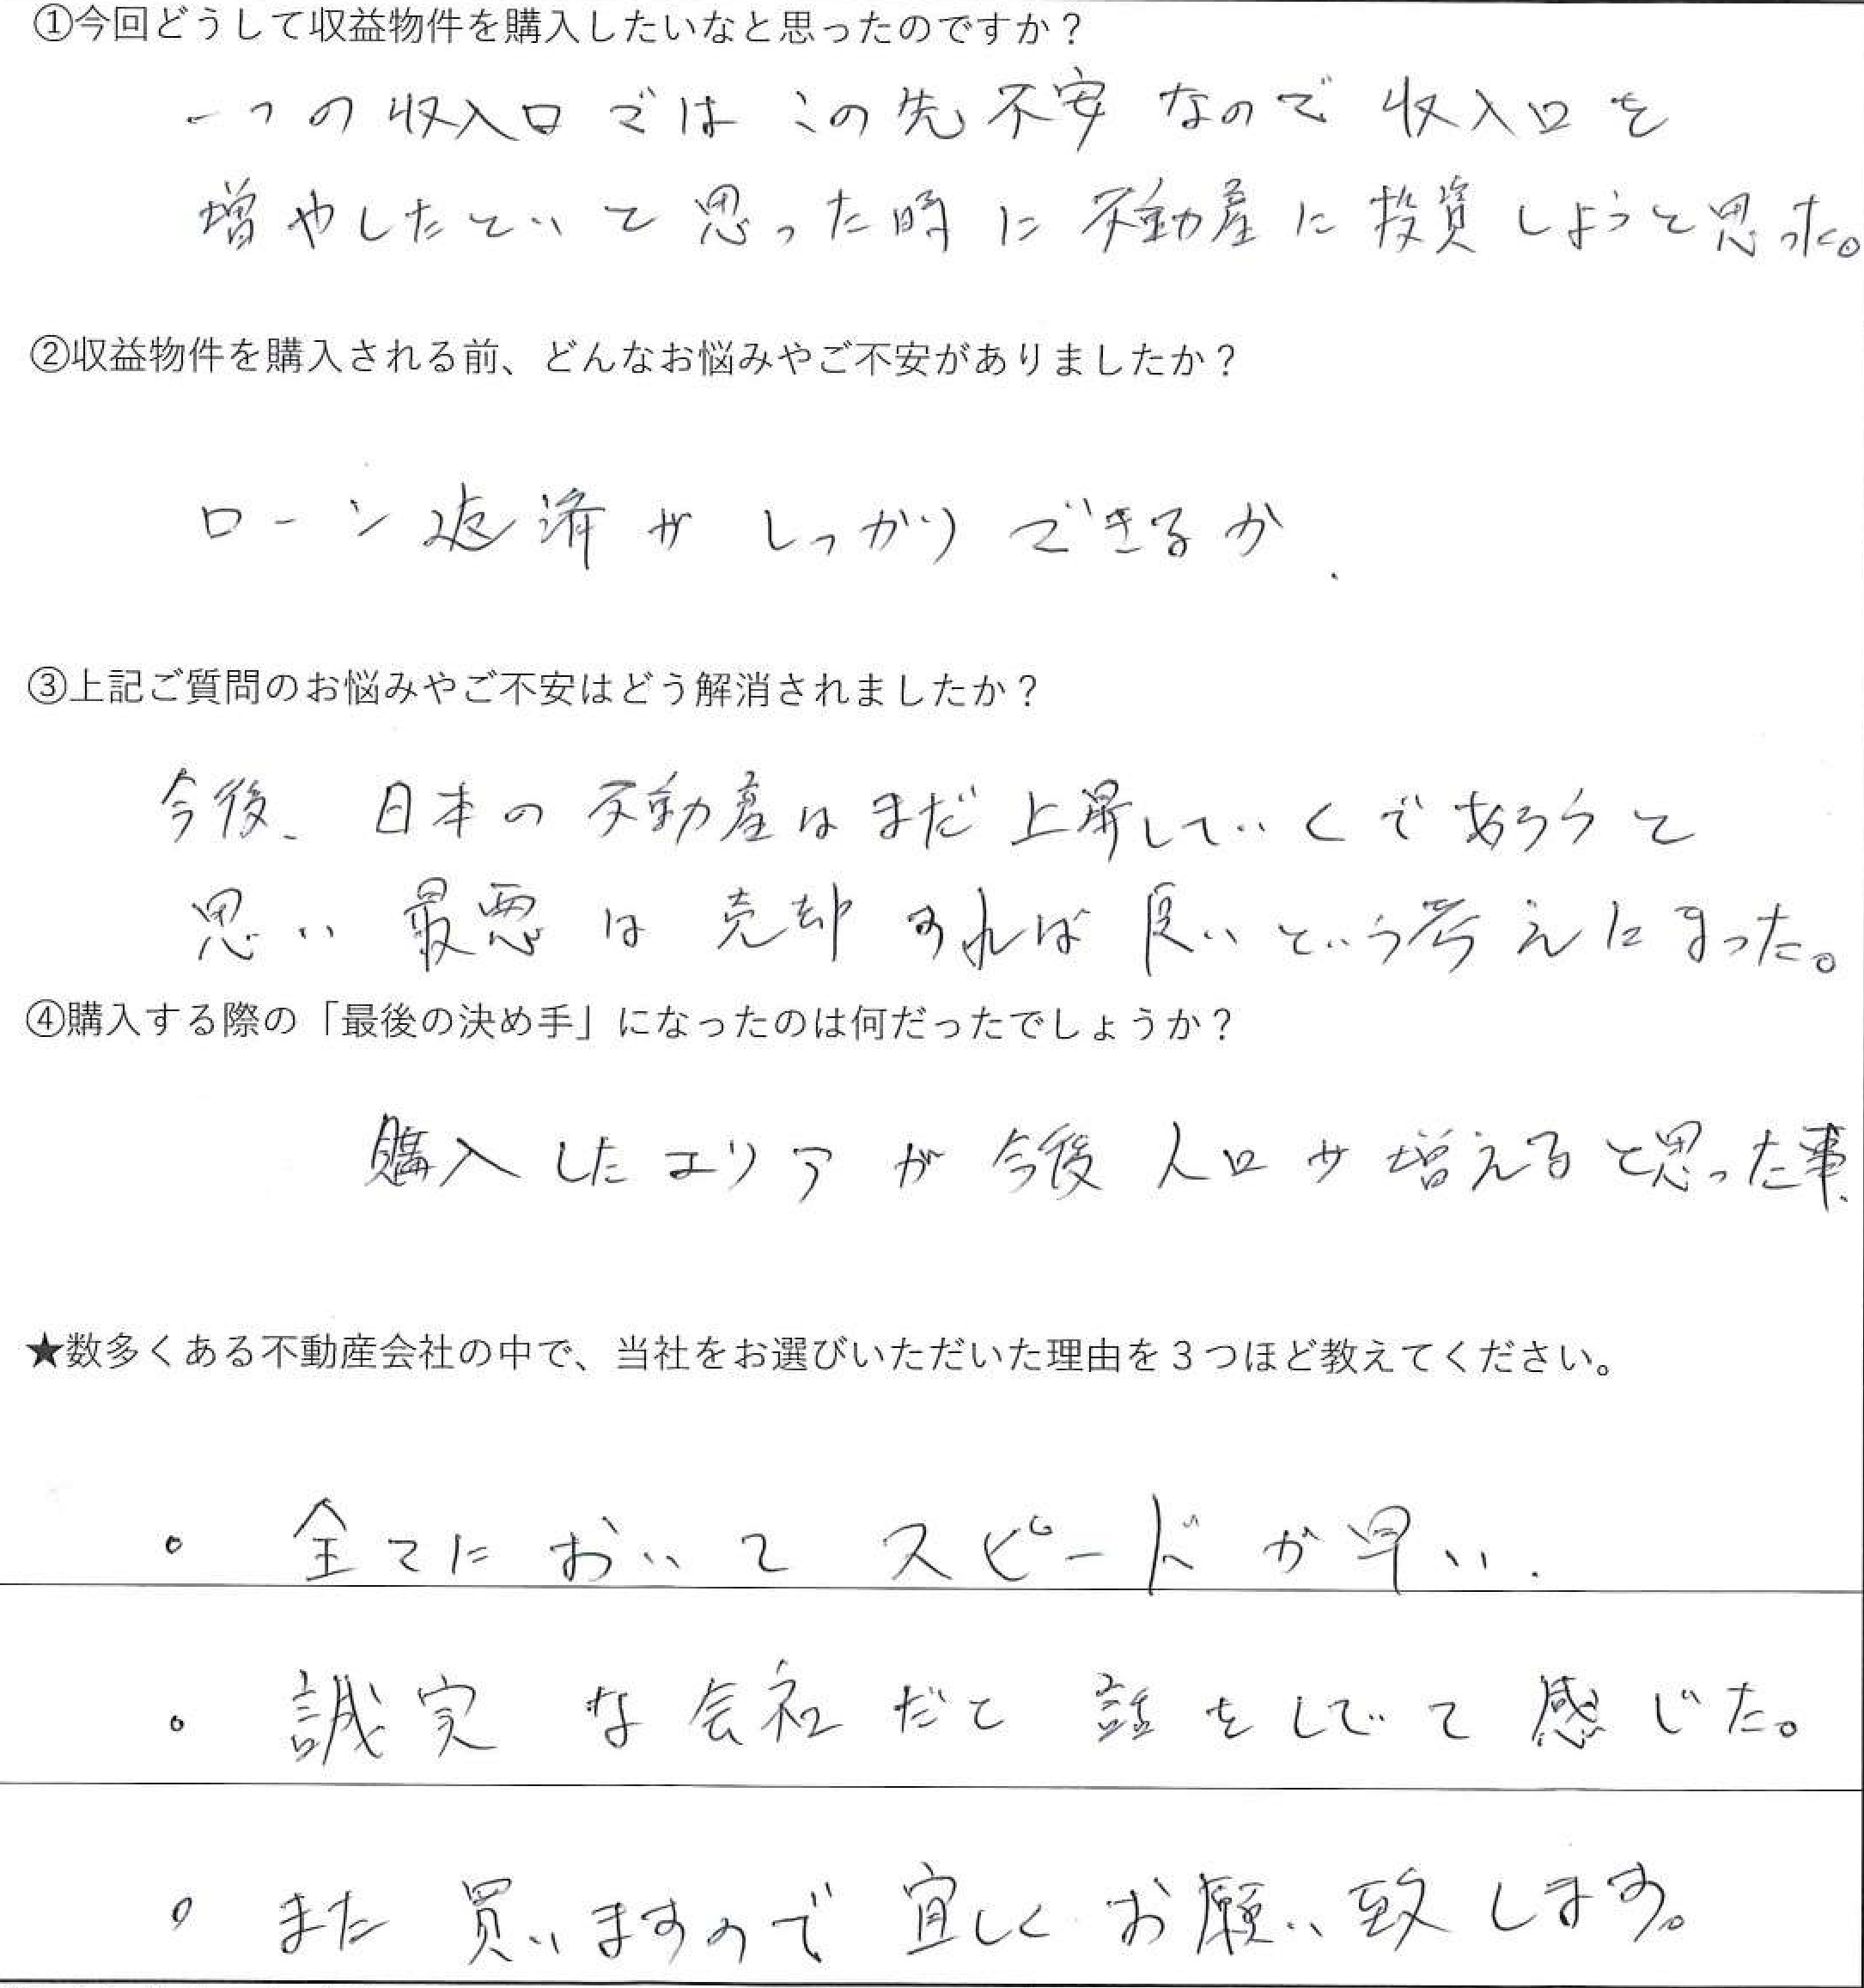 ①今回どうして収益物件を購入したいなと思ったのですか？
一つの収入口ではこの先不安なので収入口を
増やしたいと思った時に不動産に投資しようと思った。
②収益物件を購入される前、どんなお悩みやご不安がありましたか？
ローン返済がしっかりできるか.
③上記ご質問のお悩みやご不安はどう解消されましたか？
今後、日本の不動産はまだ上昇していくであろうと
思い最悪は売却すれば良いという考えにまった。
④購入する際の「最後の決め手」になったのは何だったでしょうか？
購入したエリアが今後人口が増えると思った事.
★数多くある不動産会社の中で、当社をお選びいただいた理由を３つほど教えてください。
。全てにおいてスピードが早い.
。誠実な会社だと話をしてて感じた。
。また買いますので宜しくお願い致します。